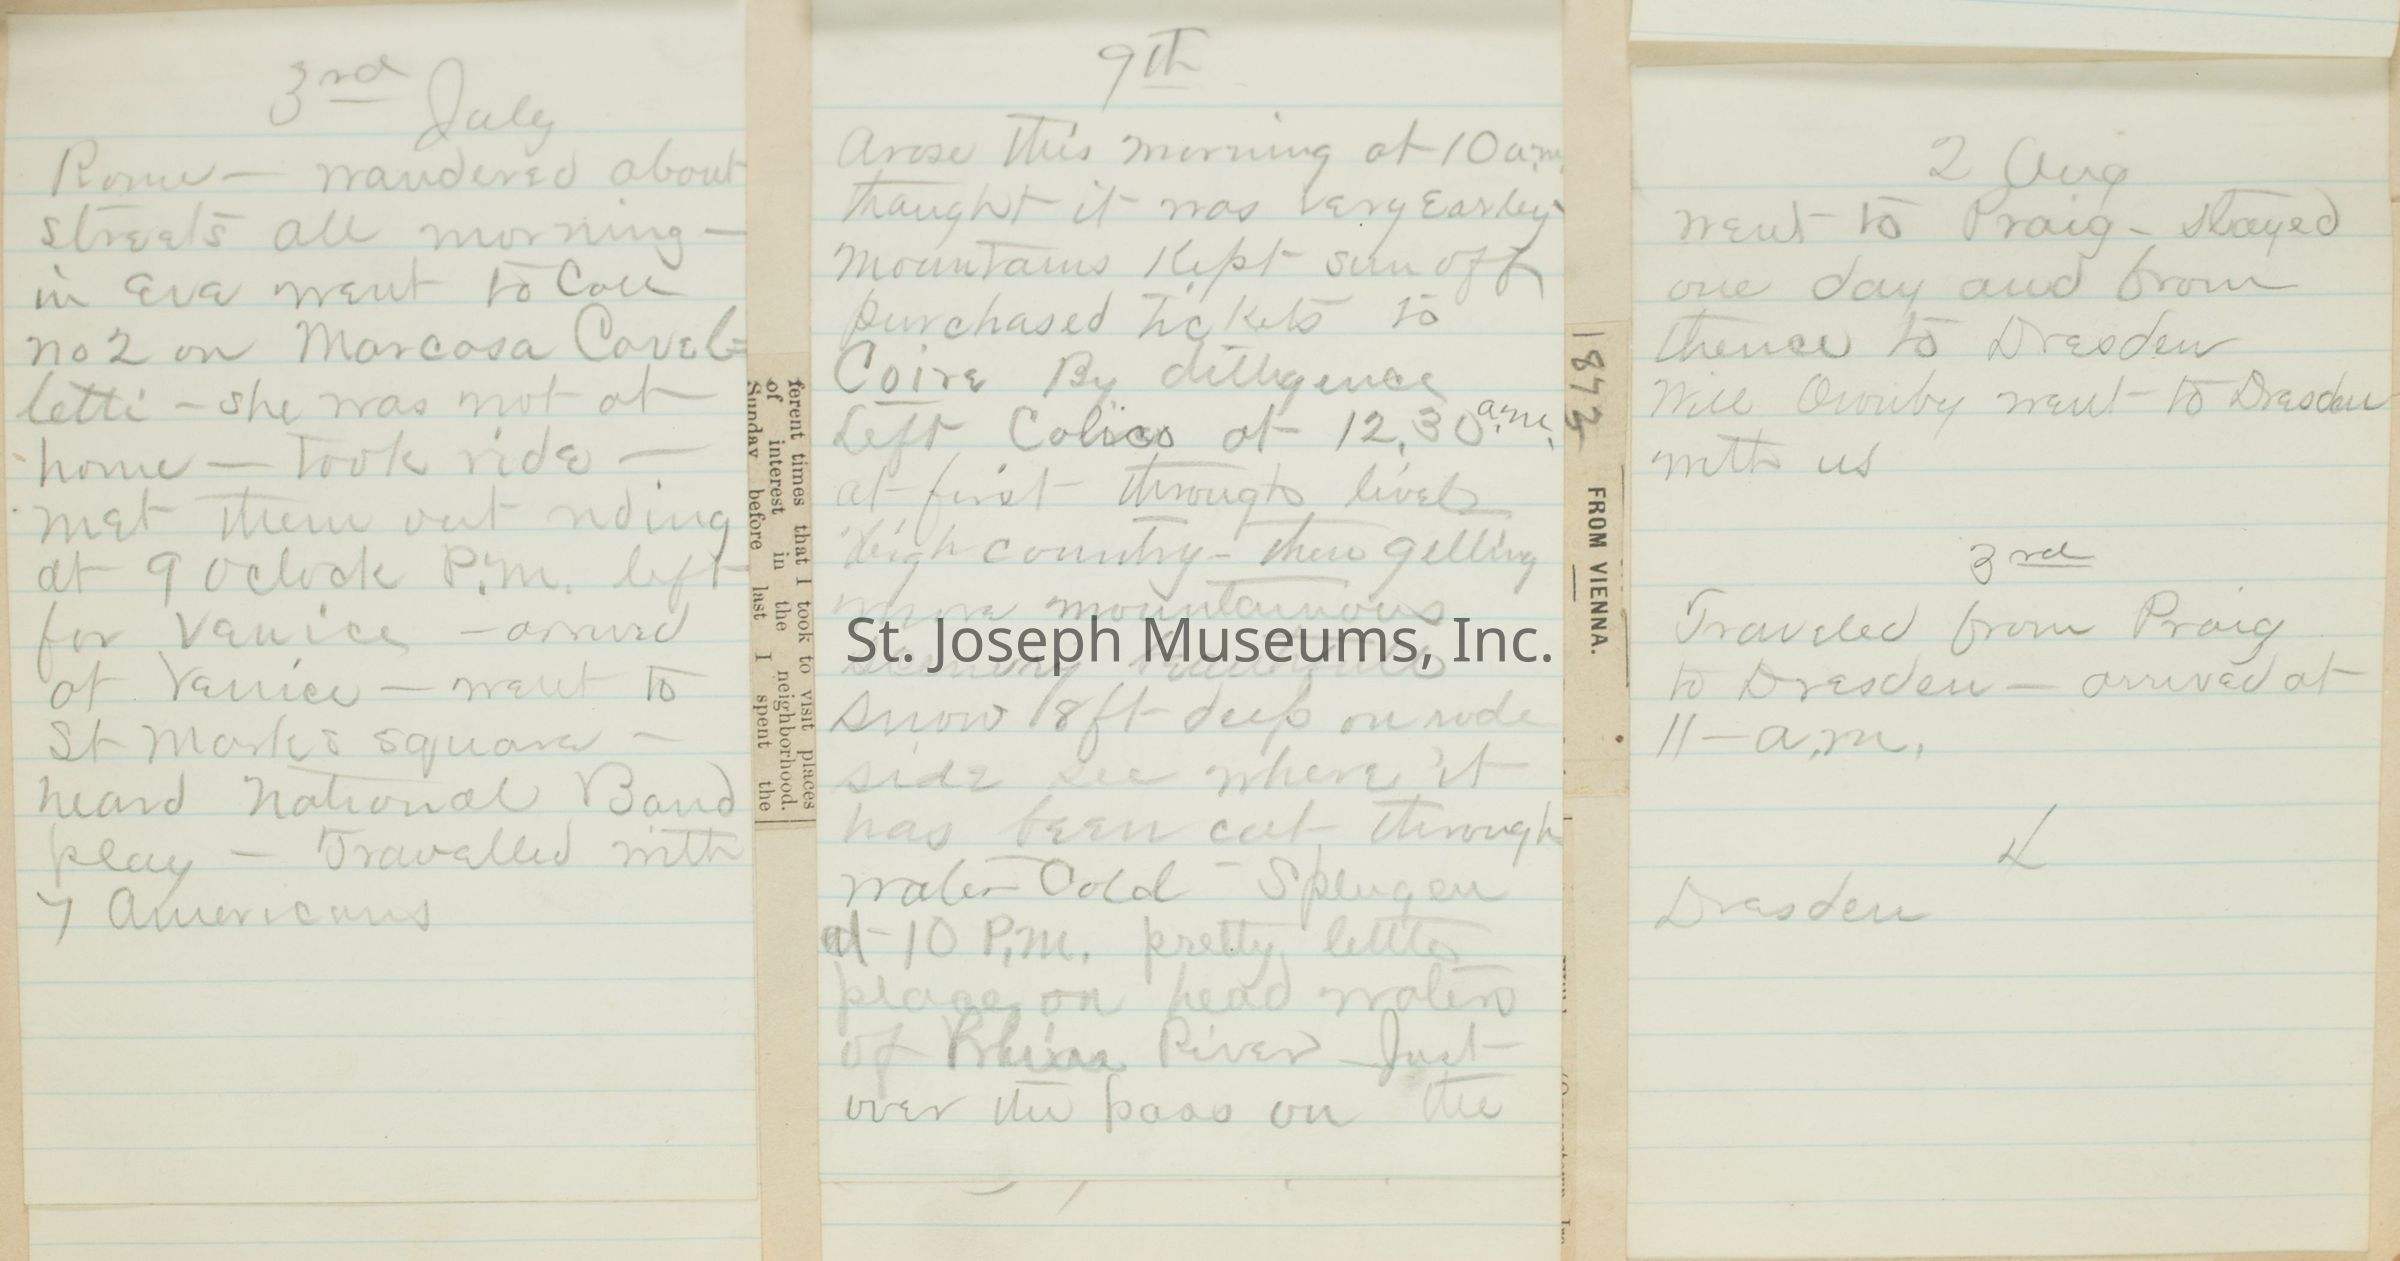 3rd July
Rome — wandered about
streets all morning —
in Eve went to Call
no 2 on Marcasa Cavel=
letti - she was not at
home — took ride —
met them out riding
at 9 oclock P.M. left
for Venice - arrived
at Venice — went to
St Marks square -
heard National Band
play - Travelled with
7 Americans
ferent times that I took to visit places
of interest in the neighborhood.
Sunday before last I spent the
9th
Arose this morning at 10 a.m.
thaught it was very Earley
mountains Kept sun off
purchased tickets to
Coire By dilligence
Left Colico at 12,30 a.m.
at first through level
high country - then getting
more mountainous
snow 18 ft deep on rode
side see where it
has been cut through
water Cold - Splugen
at 10 P.M. pretty little
place on head waters
of Rhine River - Just
over the pass on the
187
FROM VIENNA.
2 Aug
went to Praig - stayed
one day and from
thence to Dresden
Will Ownby went to Dresden
with us
3rd
Traveled from Praig
to Dresden — arrived at
11 - a.m.
4
Dresden
St. Joseph Museums, Inc.